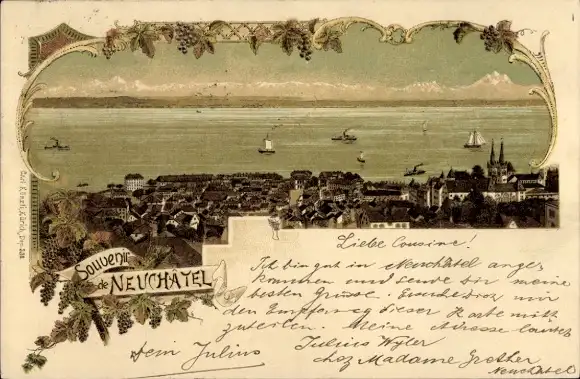 Carl Künzli, Zürich, Dep. 528
Souvenir
de NEUCHÂTEL
Liebe Cousine!
Ich bin gut in Neuchâtel ange-
kommen und sende dir meine
besten Grüsse. mir
den Empfang dieser Karte mitt
zuteilen. Meine Adresse lautet
Julius Wyler
chez Madame Grether
Neuchâtel
Dein Julius